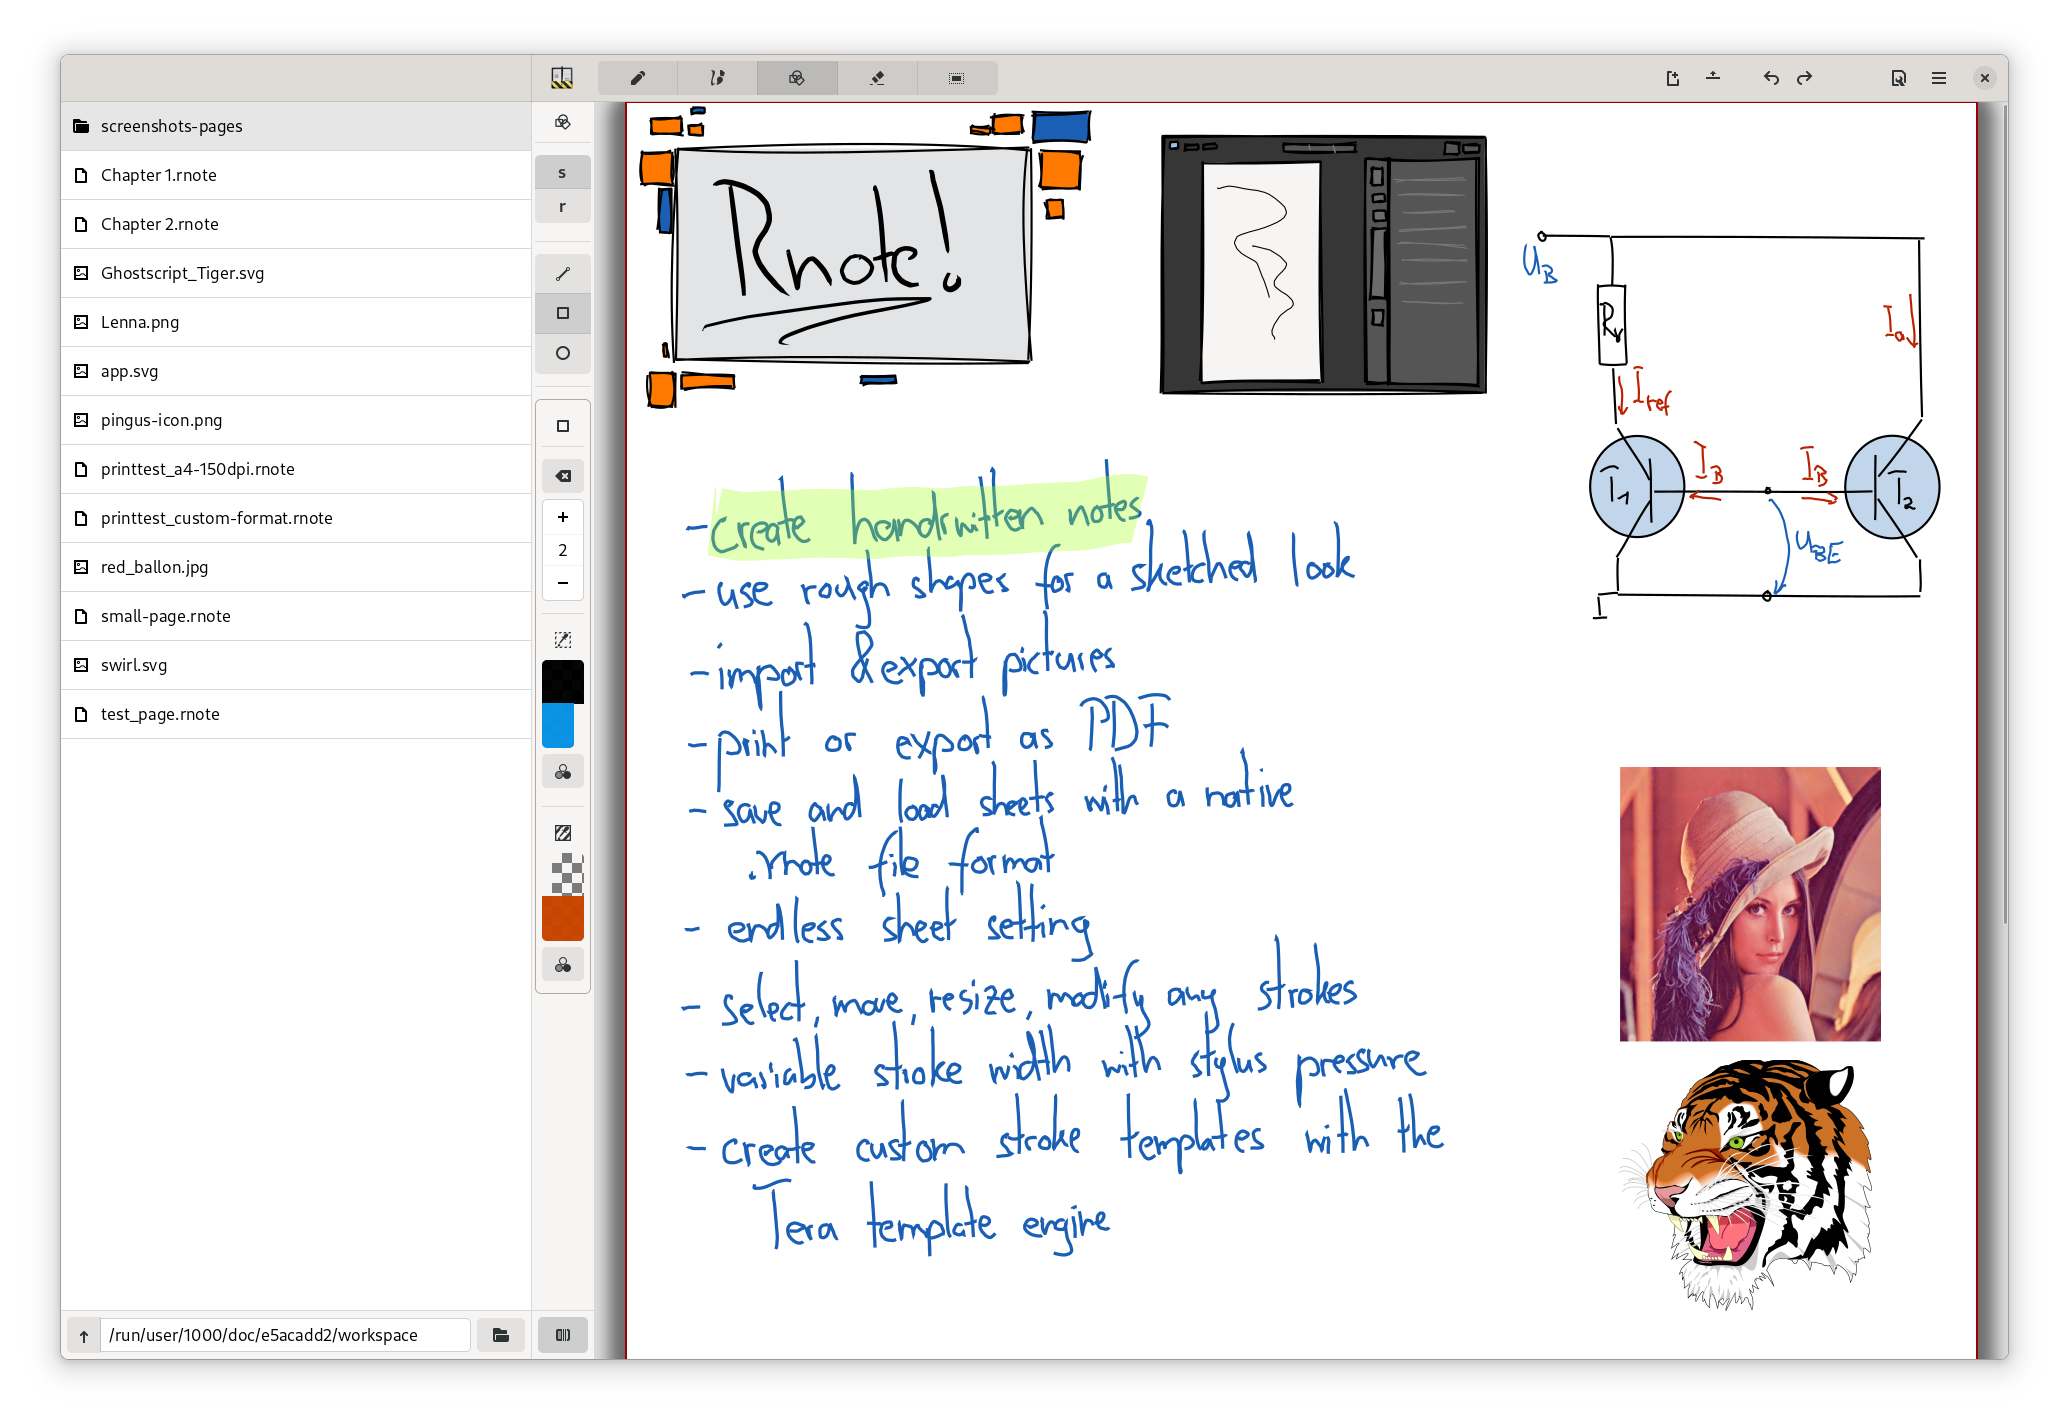 screenshots-pages
Chapter 1.rnote
Chapter 2.rnote
Ghostscript_Tiger.svg
Lenna.png
app.svg
pingus-icon.png
printtest_a4-150dpi.rnote
printtest_custom-format.rnote
red_ballon.jpg
small-page.rnote
swirl.svg
test_page.rnote
/run/user/1000/doc/e5acadd2/workspace
s
r
+
2
−
Rnote!
- create handwritten notes
- use rough shapes for a sketched look
- import & export pictures
- print or export as PDF
- save and load sheets with a native
.rnote file format
- endless sheet setting
- select, move, resize, modify any strokes
- variable stroke width with stylus pressure
- create custom stroke templates with the
Tera template engine
U_B
R_V
I_a
I_ref
I_B
I_B
T_1
T_2
U_BE